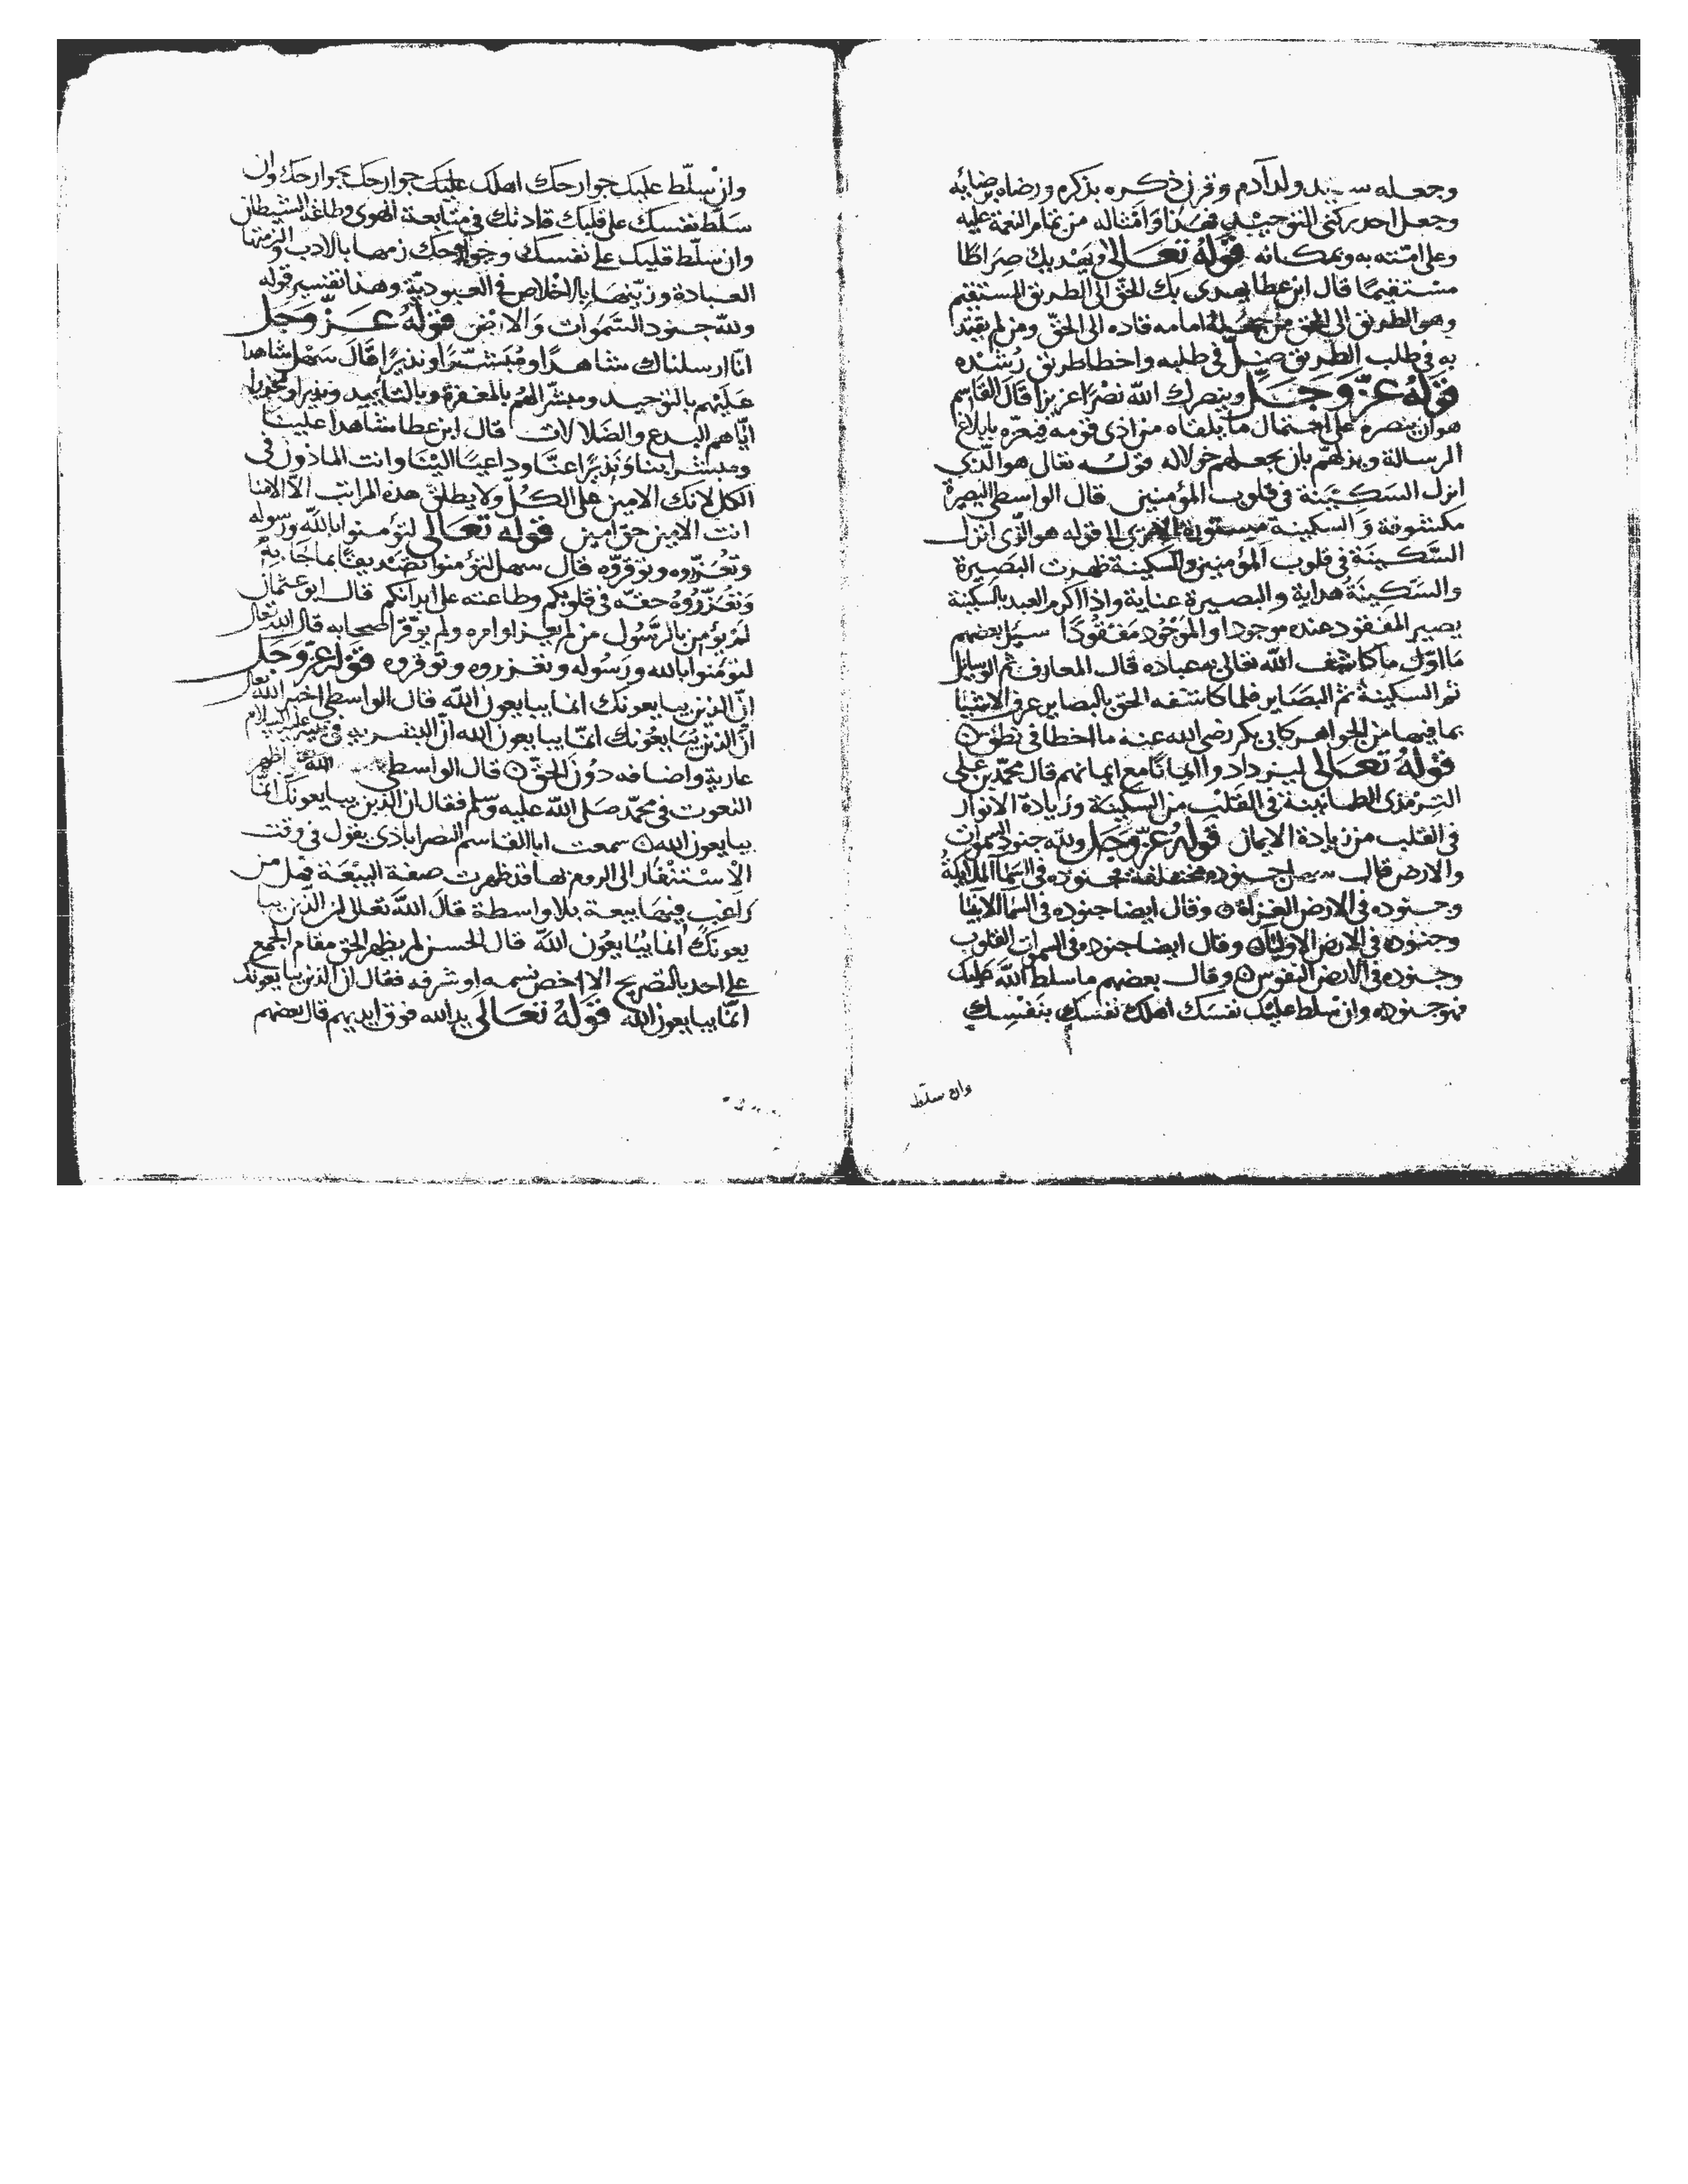 وجعله سيد ولد آدم وقرن ذكره بذكره ورضاه برضائه
وجعل احد ركني التوحيد فهذا وامثاله من تمام النعمة عليه
وعلى امته به وبمكانه قوله تعالى ويهديك صراطا
مستقيما قال ابن عطا يهدي بك الخلق الى الطريق المستقيم
وهو الطريق الى الحق من جعله امامه قاده الى الحق ومن لم يقتد
به في طلب الطريق ضل في طلبه واخطا طريق رشده
قوله عز وجل وينصرك الله نصرا عزيزا قال القاسم
هو ان ينصره على احتمال ما يلقاه من اذى قومه فيعزه بابلاغ
الرسالة ويذلهم بان يجعلهم خولا له قوله تعالى هو الذي
انزل السكينة في قلوب المؤمنين قال الواسطي البصيرة
مكشوفة والسكينة مستورة الا ترى الا قوله هو الذي انزل
السكينة في قلوب المؤمنين والسكينة ظهرت البصيرة
والسكينة هداية والبصيرة عناية واذا اكرم العبد بالسكينة
يصير المفقود عنده موجودا والموجود مفقودا سيل بعضهم
ما اول ما كاشف الله تعالى به عباده قال المعارف ثم الوسايل
ثم السكينة ثم البصاير فلما كاشفه الحق بالبصاير عرف الاشيا
بما فيها من الجواهر كابي بكر رضي الله عنه ما اخطا في نطق
قوله تعالى ليزدادوا ايمانا مع ايمانهم قال محمد بن علي
الترمذي الطمانينة في القلب من السكينة وزيادة الانوار
في القلب من زيادة الايمان قوله عز وجل ولله جنود السموات
والارض قال سهل جنوده مختلفة فجنوده في السما الملايكة
وجنوده في الارض الغزاة وقال ايضا جنوده في السما الانبيا
وجنوده في الارض الاوليا وقال ايضا جنوده في السموات القلوب
وجنوده في الارض النفوس وقال بعضهم ما سلط الله عليك
فهو جنوده وان سلط عليك نفسك اهلك نفسك بنفسك
وان سلط
وان سلط عليك جوارحك اهلك عليك جوارحك بجوارحك وان
سلط نفسك على قلبك قادتك في متابعة الهوى وطاعة الشيطان
وان سلط قلبك على نفسك وجوارحك زمها بالادب والزمها
العبادة وزينها بالاخلاص في العبودية وهذا تفسير قوله
ولله جنود السموات والارض قوله عز وجل
انا ارسلناك شاهدا ومبشرا ونذيرا قال سهل شاهدا
عليهم بالتوحيد ومبشرا لهم بالمغفرة وبالتاييد ونذيرا ومحذرا
اياهم البدع والضلالات قال ابن عطا شاهدا علينا
ومبشرا بنا ونذيرا عنا وداعيا الينا وانت الماذون في
الكل لانك الامين على الكل ولا يطلق هذه المراتب الا الامنا
انت الامين حق امين قوله تعالى لتؤمنوا بالله ورسوله
وتعزروه وتوقروه قال سهل لتؤمنوا تصديقا بما جا به
وتعزروه حقه في قلوبكم وطاعته على ابدانكم قال ابو عثمان
لم يؤمن بالرسول من لم يعزز اوامره ولم يوقر اصحابه قال الله تعالى
لتؤمنوا بالله ورسوله وتعزروه وتوقروه قوله عز وجل
ان الذين يبايعونك انما يبايعون الله قال الواسطي اخبر الله تعالى
ان الذين يبايعونك انما يبايعون الله ان البشرية في نبيه عليه السلام
عارية واضافه دون الحق قال الواسطي الله اظهر
النعوت في محمد صلى الله عليه وسلم فقال ان الذين يبايعونك انما
يبايعون الله سمعت ابا القاسم النصراباذي يقول في وقت
الاستنفار الى الروم نها قد ظهرت صفة البيعة فهل من
راغب فيها بيعة بلا واسطة قال الله تعالى ان الذين يبا
يعونك انما يبايعون الله قال الحسن لم يظهر الحق مقام الجمع
على احد بالتصريح الا اخص نسمه او شرفه فقال ان الذين يبايعونك
انما يبايعون الله قوله تعالى يد الله فوق ايديهم قال بعضهم